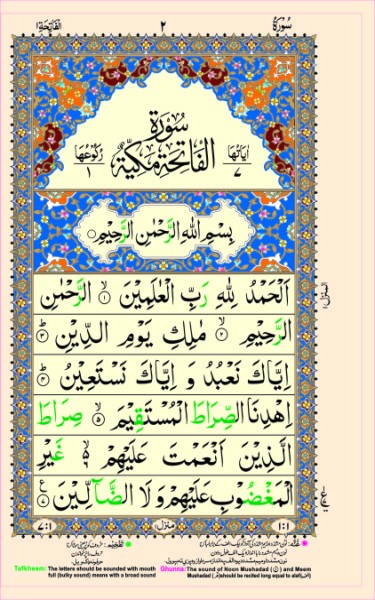 سُوْرَةُ ٢ اَلْفَاتِحَةِ ١
سُوْرَةُ
اٰيَاتُهَا ٧ الْفَاتِحَةِ مَكِّيَّةٌ رُكُوْعُهَا ١
بِسْمِ اللّٰهِ الرَّحْمٰنِ الرَّحِيْمِ
اَلْحَمْدُ لِلّٰهِ رَبِّ الْعٰلَمِيْنَ ۙ‏﴿١﴾ الرَّحْمٰنِ
الرَّحِيْمِ ۙ‏﴿٢﴾ مٰلِكِ يَوْمِ الدِّيْنِ ؕ‏﴿٣﴾
اِيَّاكَ نَعْبُدُ وَ اِيَّاكَ نَسْتَعِيْنُ ؕ‏﴿٤﴾
اِهْدِنَا الصِّرَاطَ الْمُسْتَقِيْمَ ۙ‏﴿٥﴾ صِرَاطَ
الَّذِيْنَ اَنْعَمْتَ عَلَيْهِمْ ۙ۬‏﴿٦﴾ غَيْرِ
الْمَغْضُوْبِ عَلَيْهِمْ وَ لَا الضَّآلِّيْنَ
١:١ منزل ١ ٧:١
Tafkheem: The letters should be sounded with mouth
full (bulky sound) means with a broad sound
Ghunna: The sound of Noon Mushadad (نّ) and Meem
Mushadad (مّ) should be recited long equal to alaf